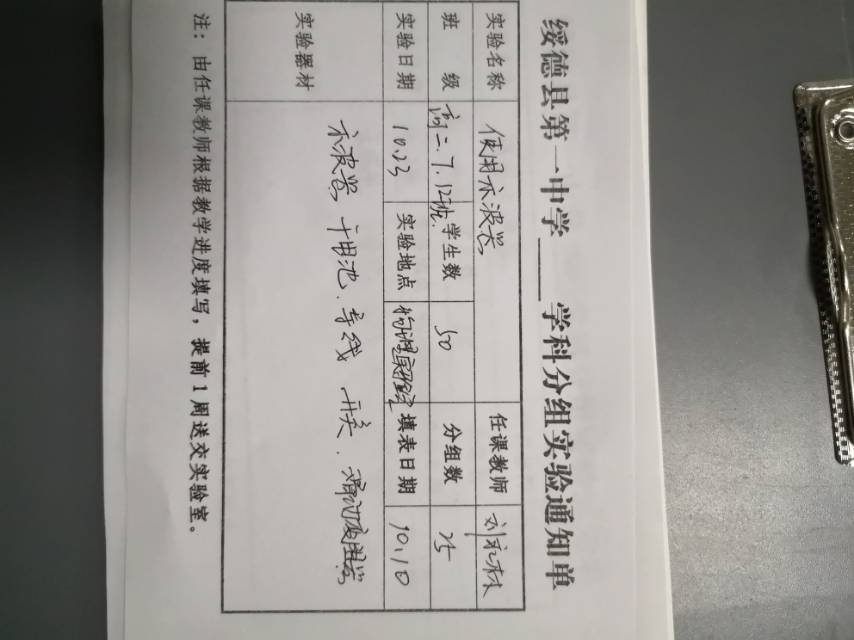 绥德县第一中学____学科分组实验通知单
实验名称 使用示波器 任课教师 刘永林
班 级 高二.7.12班. 学生数 50 分组数 25
实验日期 10.23 实验地点 物理实验室 填表日期 10.10
实验器材 示波器 干电池.导线 开关.滑动变阻器
注：由任课教师根据教学进度填写，提前1周送交实验室。